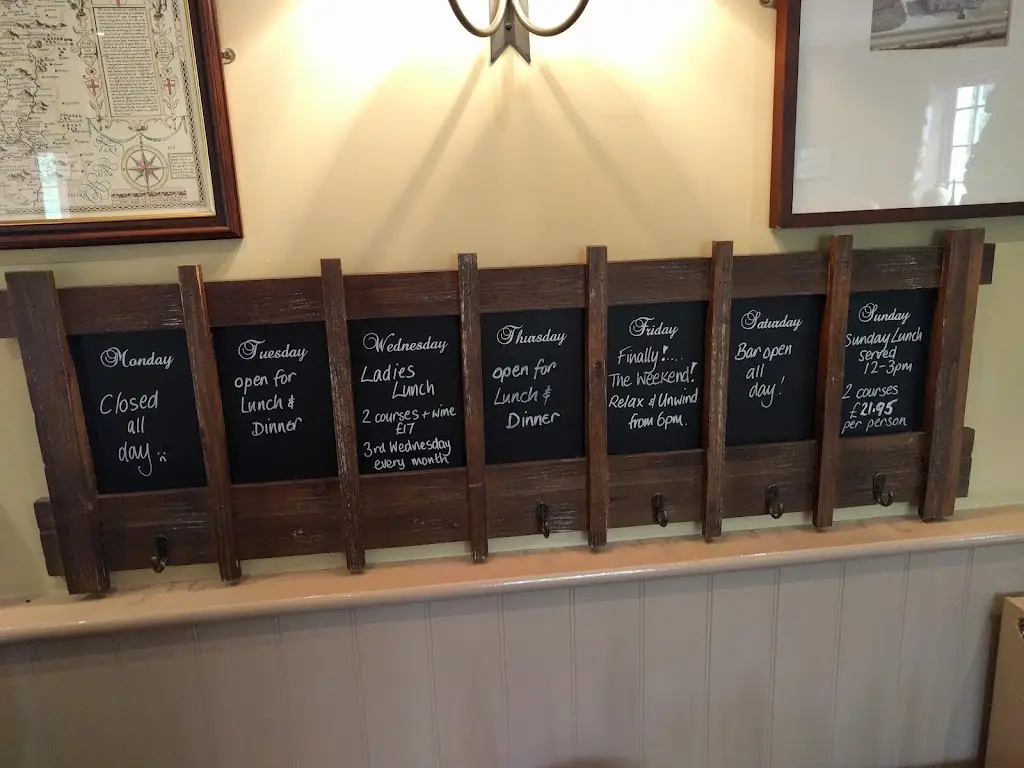 Monday
Closed
all
day :(
Tuesday
open for
Lunch &
Dinner
Wednesday
Ladies
Lunch
2 courses + wine
£17
3rd Wednesday
every month
Thursday
open for
Lunch &
Dinner
Friday
Finally!....
The Weekend!
Relax & Unwind
from 6pm.
Saturday
Bar open
all
day!
Sunday
Sunday Lunch
served
12-3pm
2 courses
£21.95
per person